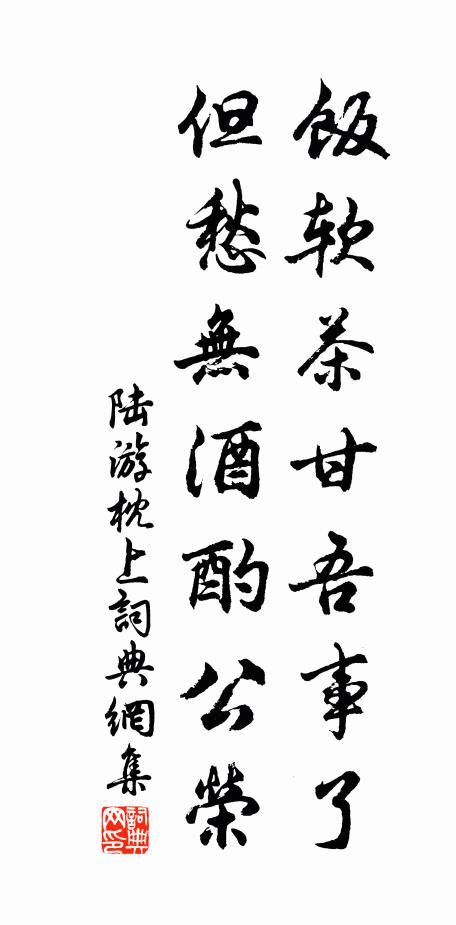 飯軟茶甘吾事了
但愁無酒酌公榮
陆游枕上詞典網集
詞典
网印